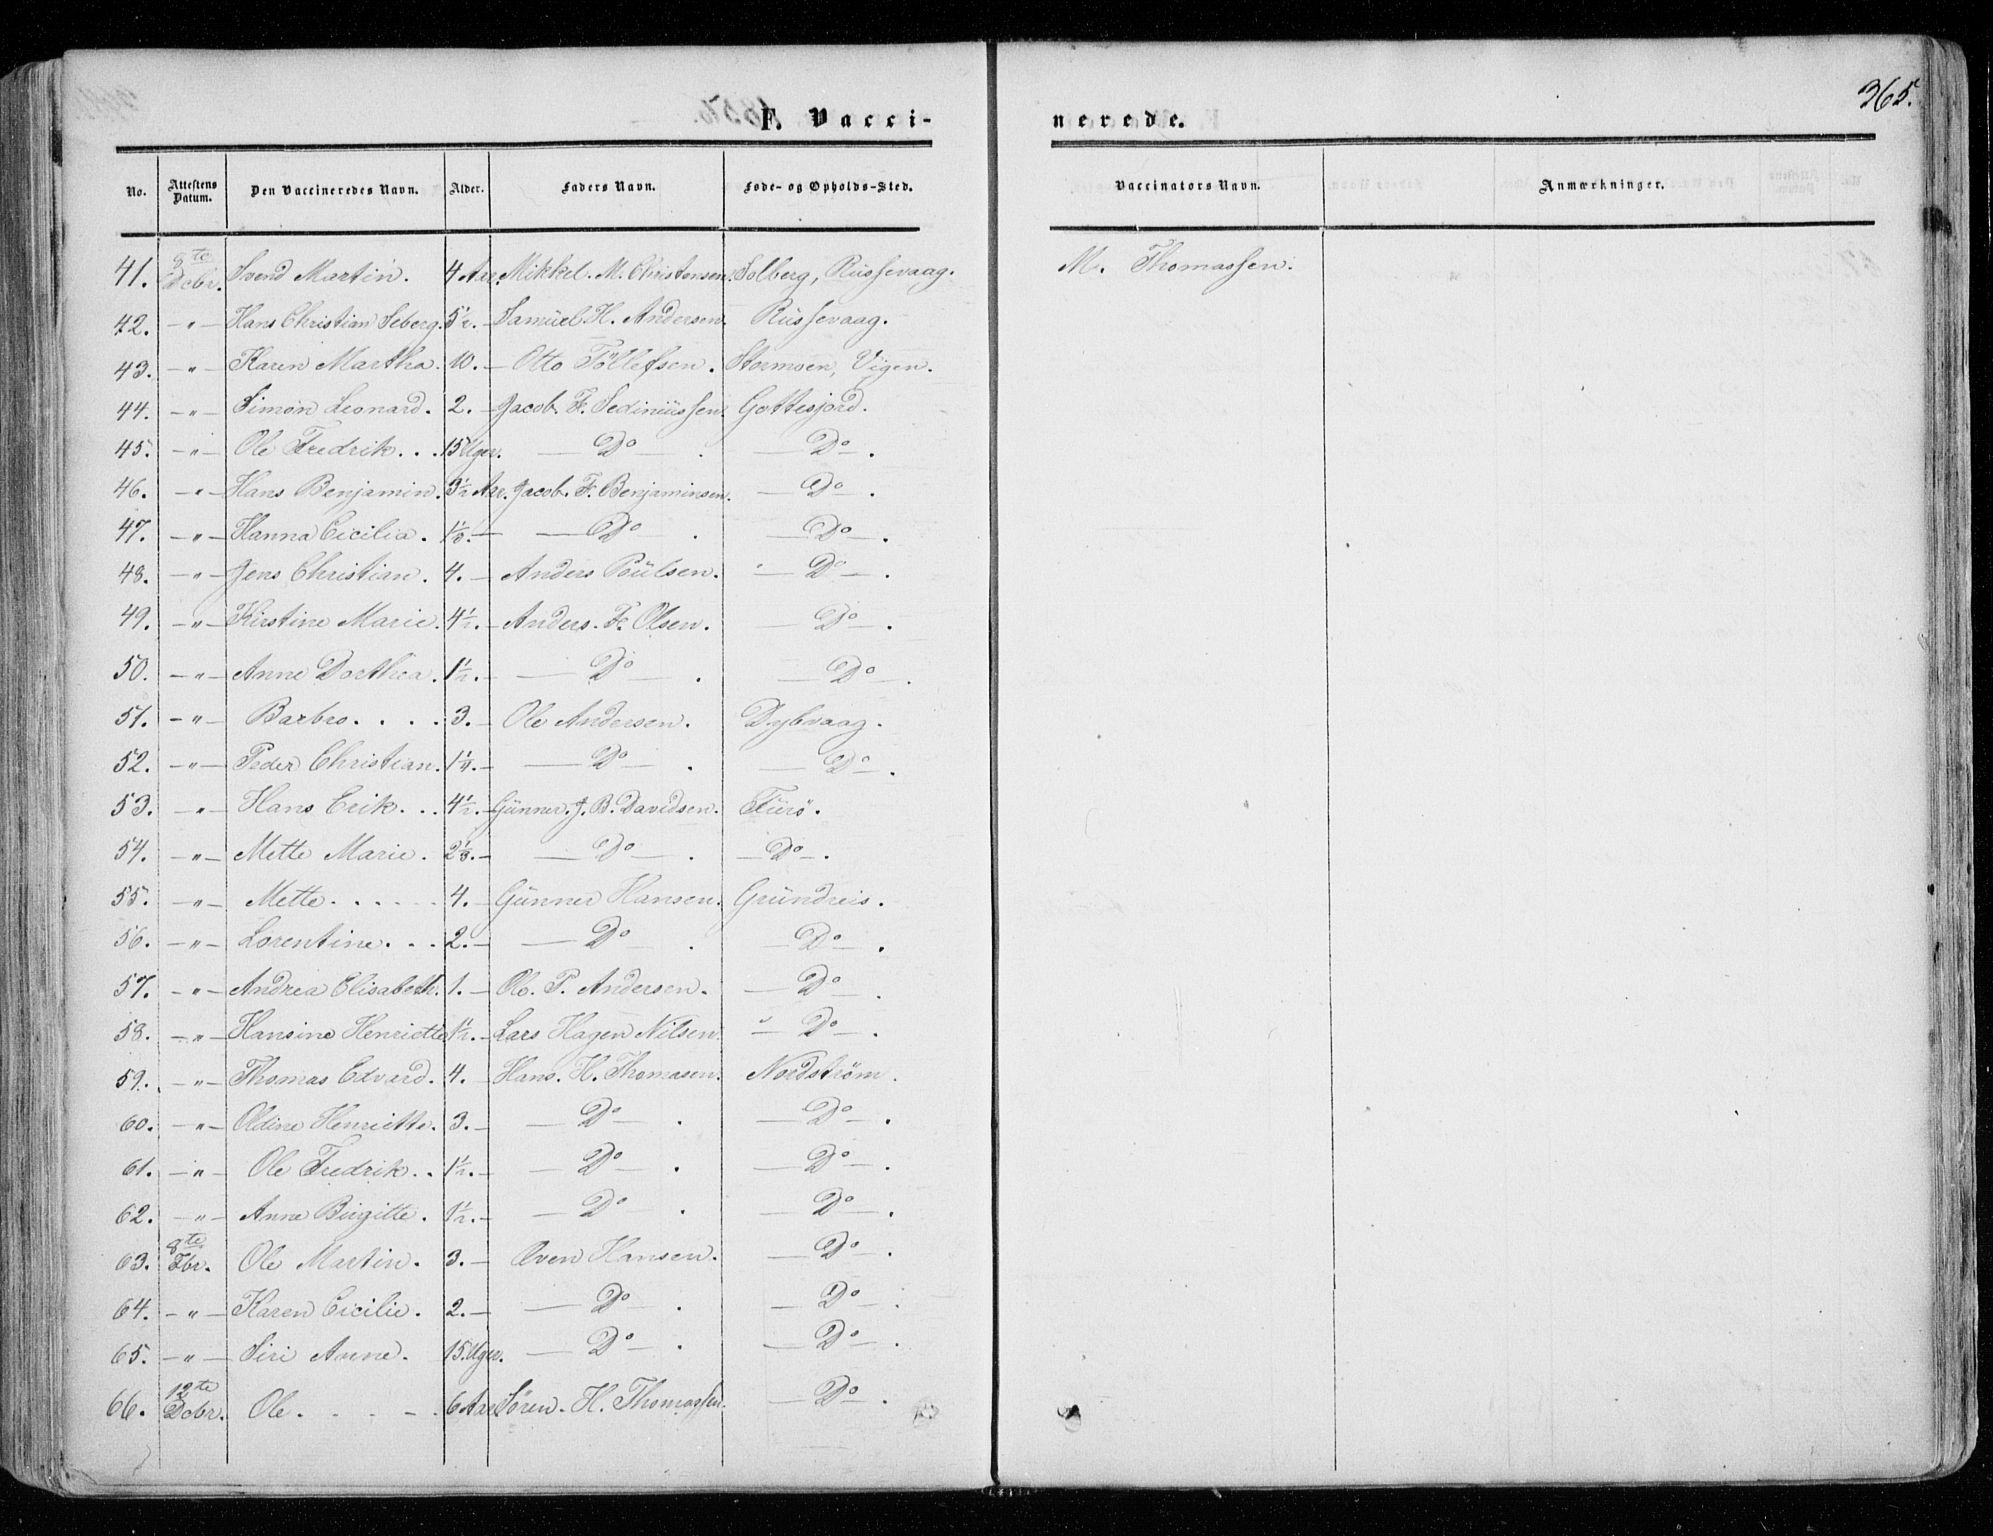 365.
F. Vacci-
nerede.
No. Attestens Datum. Den Vaccineredes Navn. Alder. Faders Navn. Føde- og Opholds-Sted. Vaccinators Navn. Anmærkninger.
41. 8te Dcbr. Svend Martin. 4 Aar. Mikkel. M. Christensen. Solberg, Russevaag. M. Thomassen.
42. -"- Hans Christian Seberg. 5½. - Samüel H. Andersen. Russevaag.
43. -"- Karen Martha. 10. - Otto Töllefsen. Stormoen, Vigen.
44. -"- Simon Leonard. 2. - Jacob. F. Sediniüssen. Gottesjord.
45. -"- Ole Fredrik. . . 15 Uger. - Do - . - Do - .
46. -"- Hans Benjamin. 3½ Aar. Jacob. F. Benjaminsen. - Do - .
47. -"- Hanna Cicilia. - - Do - . - Do - .
48. -"- Jens Christian. 4. - Anders Poülsen. - Do - .
49. -"- Kirstine Marie. 4½. - Anders. F. Olsen. - Do - .
50. -"- Anne Dorthea. 1½. - - Do - . - Do - .
51. -"- Barbro. . . . . 3. - Ole Andersen. Dybvaag.
52. -"- Peder Christian. 1¼. - - Do - . - Do - .
53. -"- Hans Erik. . . 4½. - Günner. J. B. Davidsen. Fürö.
54. -"- Mette Marie. - - Do - . - Do - .
55. -"- Mette. . . . . . 4. - Günner Hansen. Gründreis.
56. -"- Lorentine. . . 2. - - Do - . - Do - .
57. -"- Andrea Elisabeth. 1. - Ole. P. Andersen. - Do - .
58. -"- Hansine Henriette 1½. - Lars Hagen Nilsen. - Do - .
59. -"- Thomas Edvard. 4. - Hans. H. Thomasen. Nordström.
60. -"- Oldine Henriette. 3. - - Do - . - Do - .
61. -"- Ole Fredrik . . 1½. - - Do - . - Do - .
62. -"- Anne Birgitte. 1½. - - Do - . - Do - .
63. 8te Fbr. Ole Martin. 3. - Even Hansen. - Do - .
64. -"- Karen Cicilie. 2. - - Do - . - Do - .
65. -"- Siri Anne. 15. Uger. - Do - . - Do - .
66. 12te Dcbr. Ole. . . . . 6 Aar Sören. H. Thomassen. - Do - .